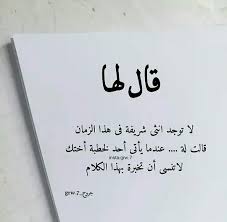 قال لها
لا توجد انثى شريفة فى هذا الزمان
قالت لة .... عندما يأتى أحد لخطبة أختك
insta:grw.7
لاتنسى أن تخبرة بهذا الكلام
جروح_grw.7